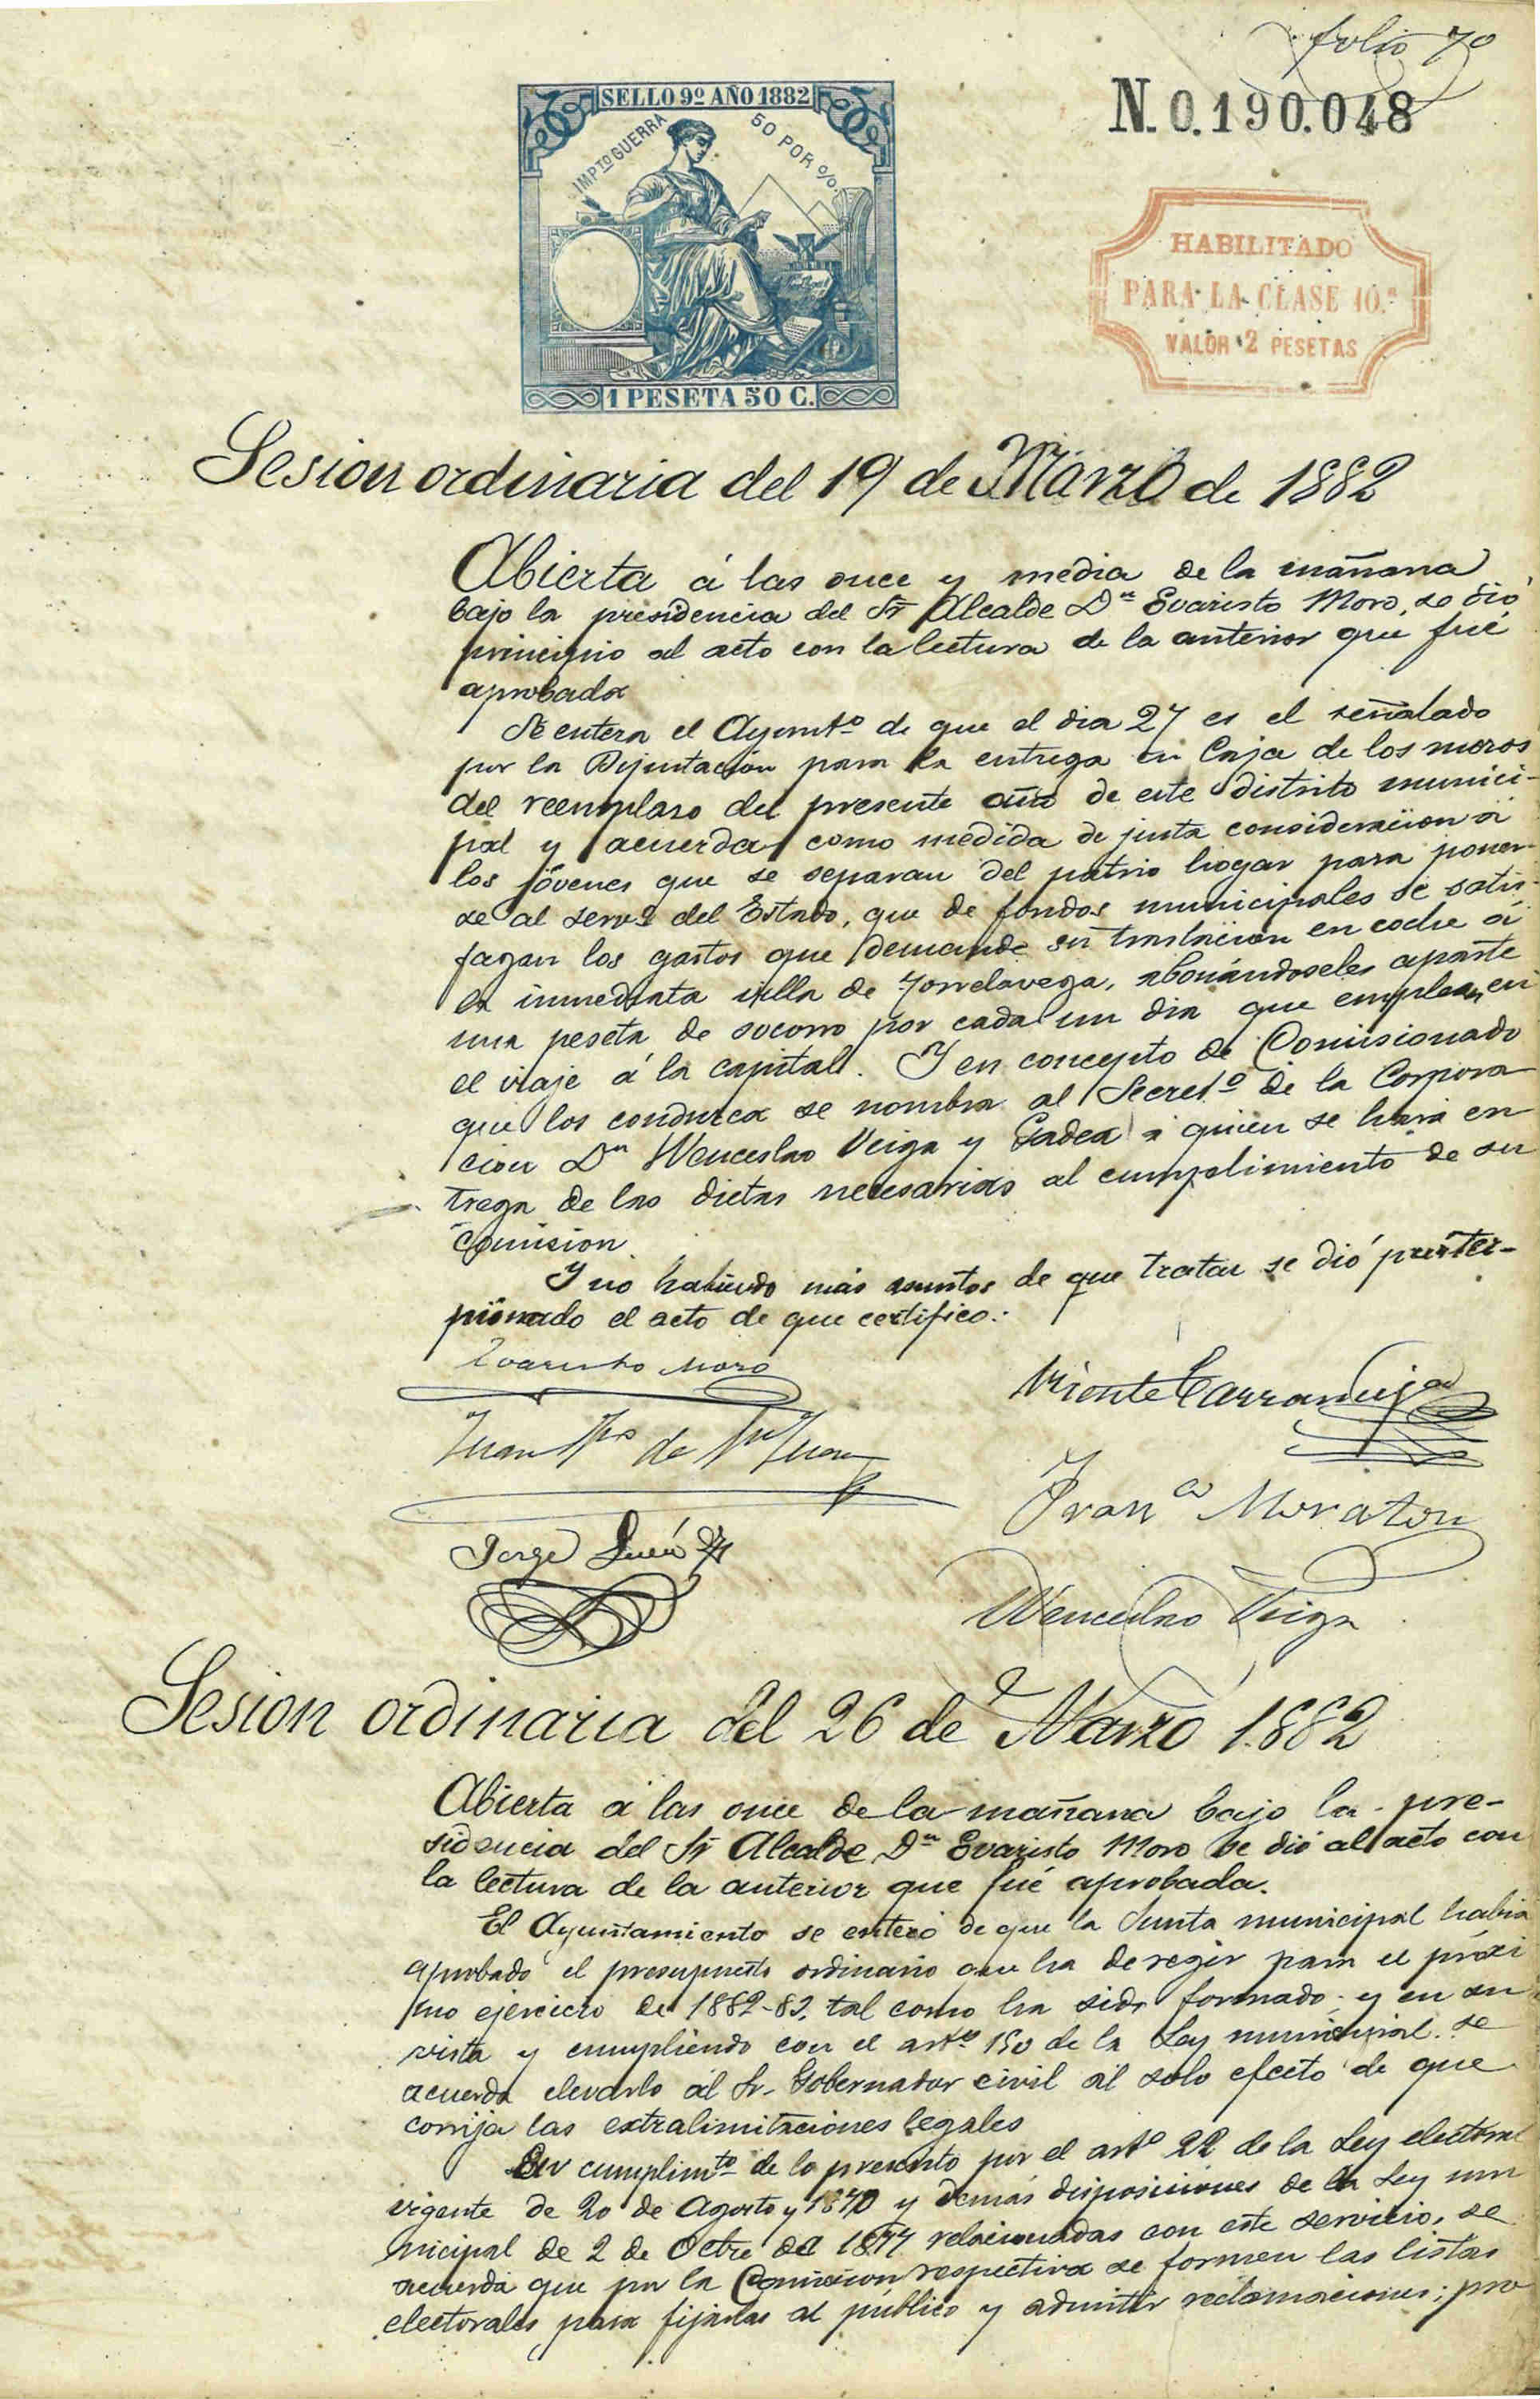 folio 70
N. 0.190.048
SELLO 9º AÑO 1882
IMPTO GUERRA 50 POR %
1 PESETA 50 C.
HABILITADO
PARA LA CLASE 10.ª
VALOR 2 PESETAS
Sesion ordinaria del 19 de Marzo de 1882
Abierta á las once y media de la mañana
bajo la presidencia del Sr Alcalde Dn Evaristo Moro, se dió
principio al acto con la lectura de la anterior que fué
aprobada
Se entera el Ayuntº de que el dia 27 es el señalado
por la Diputación para la entrega en Caja de los mozos
del reemplazo del presente año de este distrito munici-
pal y acuerda como medida de justa consideracion á
los jóvenes que se separan del patrio hogar para poner-
se al servº del Estado, que de fondos municipales se satis-
fagan los gastos que demande su traslacion en coche á
la inmediata villa de Torrelavega, abonándoseles aparte
una peseta de socorro por cada un dia que emplean en
el viaje á la capital. Y en concepto de Comisionado
que los conduzca se nombra al Secretº de la Corpora
cion Dn Wenceslao Veiga y Gadea á quien se hará en
trega de las dietas necesarias al cumplimiento de su
Comision.
Y no habiendo más asuntos de que tratar se dió por ter-
minado el acto de que certifico.
Evaristo Moro
Vicente Carrandeja
Juan de Juan
Franco Moraton
Jorge
Wenceslao Veiga
Sesion ordinaria del 26 de Marzo 1.882
Abierta á las once de la mañana bajo la pre-
sidencia del Sr Alcalde Dn Evaristo Moro se dió al acto con
la lectura de la anterior que fué aprobada.
El Ayuntamiento se enteró de que la Junta municipal habia
aprobado el presupuesto ordinario que ha de regir para el próxi
mo ejercicio de 1882-83, tal como ha sido formado y en su
vista y cumpliendo con el artº 150 de la Ley municipal se
acuerda elevarlo al Sr. Gobernador civil al solo efecto de que
corrija las extralimitaciones legales
En cumplimtº de lo prescrito por el artº 22 de la Ley electoral
vigente de 20 de Agosto y 1870 y demás disposiciones de la Ley mu
nicipal de 2 de Octre del 1877 relacionadas con este servicio, se
acuerda que por la Comision respectiva se formen las listas
electorales para fijarlas al público y admitir reclamaciones; pro